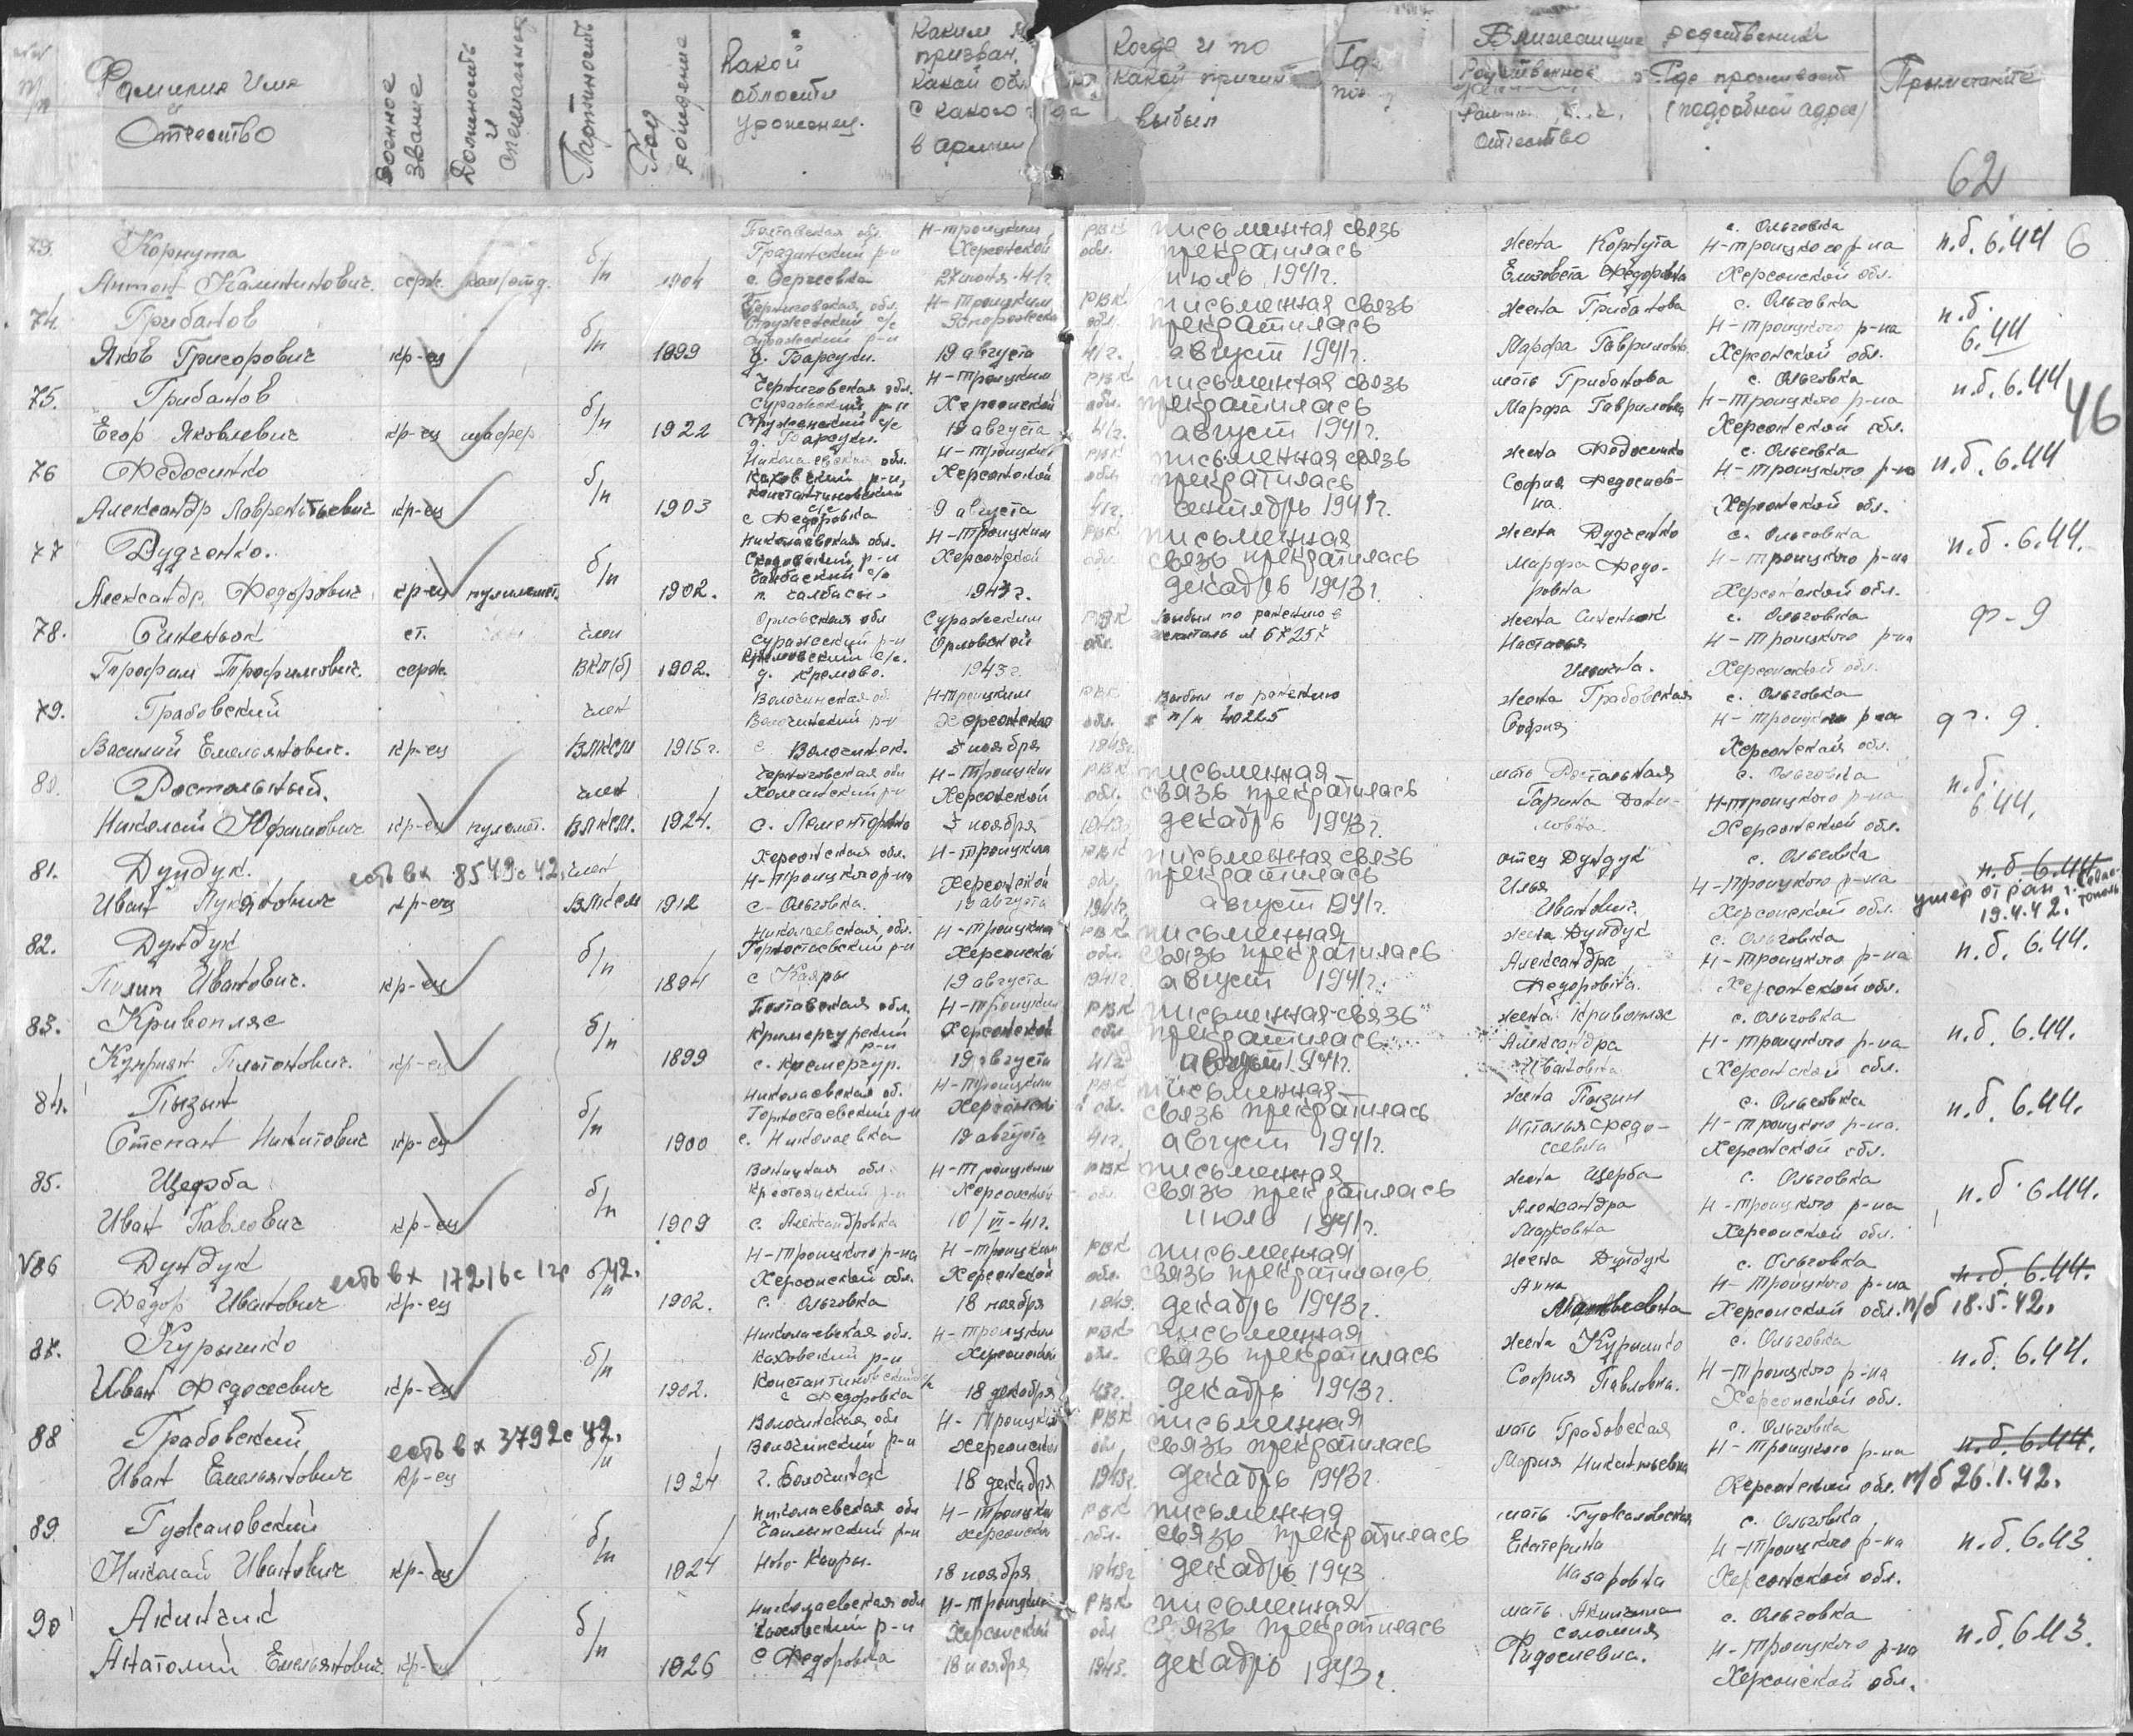 Фамилия Имя и Отчество
Военное звание
Должность и специальность
Партийность
Год рождения
Какой области уроженец.
Каким
призван,
какой обл
с какого
в армии
Когда и по какой причине выбыл
Ближайшие родственники
Отчество
Где проживает (подробной адрес)
Примечание
62
6
46
73. Корнута Антон Калинтинович. серж. ком/отд. б/п 1904
Полтавская обл. Градижский р-н с. Сергеевка
Н-троицким РВК Херсонской обл. 27 июня 41г
письменная связь прекратилась июль 1941г.
жена Корнута Елизовета Федоровна
с. Ольговка Н-троицкого р-на Херсонской обл.
п.б. 6.44
74. Грибанов Яков Григорович кр-ец б/п 1899
Черниговская обл. Суражский р-н д. Барсуки.
Н-Троицким РВК обл. 19 августа 41г.
письменная связь прекратилась август 1941г.
жена Грибанова Марфа Гавриловна
с. Ольговка Н-троицкого р-на Херсонской обл.
п.б. 6.44
75. Грибанов Егор Яковлевич кр-ец шофер б/п 1922
Черниговская обл. Суражский р-н с/с д. Барсуки.
Н-Троицким РВК Херсонской обл. 19 августа 41г.
письменная связь прекратилась август 1941г.
мать Грибанова Марфа Гавриловна
с. Ольговка Н-троицкого р-на Херсонской обл.
п.б. 6.44
76 Федосенко Александр Лаврентьевич кр-ец б/п 1903
Николаевская обл. Каховский р-н, Константиновский с/с с Федоровка
Н-троицким РВК Херсонской обл 9 августа 41г.
письменная связь прекратилась сентядрь 1941г.
жена Федосенко София Федосиевна.
с. Ольговка Н-троицкого р-на Херсонской обл.
п.б. 6.44
77 Дудченко. Александр Федорович кр-ец пулимет. б/п 1902.
Николаевская обл. Скадовский р-н с/с п. Чалбасы.
Н-Троицким РВК Херсонской обл 1943г.
письменная связь прекратилась декадрь 1943г.
жена Дудченко Марфа Федоровна
с. Ольговка Н-троицкого р-на Херсонской обл.
п.б. 6.44.
78. Синенок Трофим Трофимович. ст. серж. член ВКП(б) 1902.
Орловская обл Суражский р-н с/с. д. Кремово.
Суражским РВК Орловской обл. 1943г.
Выбыл по ранению в госпиталь
жена Синенок Настасья
с. Ольговка Н-Троицкого р-на Херсонской обл.
ф-9
79. Грабовский Василий Емельянович. кр-ец член ВЛКСМ 1915г.
Волочинский р-н с. Волочинск.
Н-троицким РВК Херсонской обл. 5 ноября 1943г
Выбыл по ранению п/п 40225
жена Грабовская София
с. Ольговка Н-троицкого р-на Херсонской обл.
ф. 9.
80. Ростальный. Николай Юфимович кр-ец пулемет. член ВЛКСМ. 1924.
Черниговская обл с.
Н-Троицким РВК Херсонской обл. 5 ноября 1943г
письменная связь прекратилась декадрь 1943г.
мать Ростальная Даниловна.
с. Ольговка Н-троицкого р-на Херсонской обл.
п.б. 6.44.
81. Дундук. Иван кр-ец член ВЛКСМ 1912
есть вх 8549с 42.
Херсонская обл. Н-троицкого р-на с. Ольговка.
Н-Троицким РВК Херсонской обл. 19 августа 1941г.
письменная связь прекратилась август 1941г.
отец Дундук Илья Иванович.
с. Ольговка Н-Троицкого р-на Херсонской обл.
п.б 6.44.
умер от ран г. Севастополь 19.4.42.
82. Дундук Пилип Иванович. кр-ец б/п 1894
Николаевская обл. Горностаевский р-н с Каиры
Н-Троицким РВК Херсонской обл. 19 августа 1941г
письменная связь прекратилась август 1941г.
жена Дундук Александра Федоровна.
с. Ольговка Н-Троицкого р-на Херсонской обл.
п.б. 6.44.
83. Кривопляс Куприян Платонович. кр-ец б/п 1899
Полтавская обл. р-н с. Кремергур.
Н-Троицким РВК Херсонской обл 19 августа 41г
письменная связь прекратилась август 1941г.
жена Кривопляс Александра Ивановна
с. Ольговка Н-Троицкого р-на Херсонской обл.
п.б. 6.44.
84. Пызин Степан Никитович кр-ец б/п 1900
Николаевская об. Горностаевский р-н с. Николаевка
Н-Троицким РВК Херсонской обл. 19 августа 41г.
письменная связь прекратилась август 1941г.
жена Пызин
с. Ольговка Н-троицкого р-на. Херсонской обл.
п.б. 6.44.
85. Щерба Иван Павлович кр-ец б/п 1909
Виницкая обл. с. Александровка
Н-Троицким РВК Херсонской обл. 10/VI-41г.
письменная связь прекратилась июль 1941г.
жена Щерба Александра Марковна
с. Ольговка Н-Троицкого р-на Херсонской обл.
п.б. 6.44.
V86 Дундук Федор Иванович кр-ец б/п 1902.
есть вх 17216с 42.
Н-Троицкого р-на Херсонской обл. с. Ольговка
Н-Троицким РВК Херсонской обл. 18 ноября 1943.
письменная связь прекратилась декадрь 1943г.
жена Дундук Анна Матвеевна
с. Ольговка Н-Троицкого р-на Херсонской обл.
п.б. 6.44.
п/б 18.5.42.
87. Курычко Иван Федосеевич кр-ец б/п 1902.
Николаевская обл. Каховский р-н с Федоровка
Н-Троицким РВК Херсонской обл. 18 декабря 43г.
письменная связь прекратилась декадрь 1943г.
жена София Павловна.
с. Ольговка Н-Троицкого р-на Херсонской обл.
п.б. 6.44.
88 Грабовский Иван Емельянович кр-ец б/п 1924
есть вх 3792с 42.
Волочинская обл Волочинский р-н
Н-Троицким РВК Херсонской обл. 18 декабря 1943г.
письменная связь прекратилась декадрь 1943г.
мать Грабовская Мария Никитьевна
с. Ольговка Н-Троицкого р-на Херсонской обл.
п.б. 6.44.
п/б 26.1.42.
89. Гужаловский Николай Иванович кр-ец б/п 1924
Николаевская обл р-н Ново-Каиры.
Н-Троицким РВК Херсонской обл. 18 ноября 1943г
письменная связь прекратилась декадрь 1943
мать Гужаловская Екатерина Назаровна
с. Ольговка Н-Троицкого р-на Херсонской обл.
п.б. 6.43
90 Акинчиц Анатолий Емельянович. кр-ец б/п 1926
Николаевская обл Каховский р-н с Федоровка
Н-Троицким РВК Херсонской обл 18 ноября 1943.
письменная связь прекратилась декадрь 1943г.
мать Соломия
с. Ольговка Н-Троицкого р-на Херсонской обл.
п.б. 6.43.